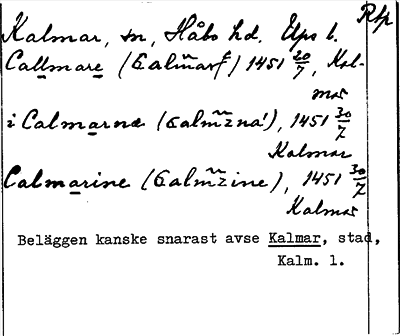 Rtp
Kalmar, sn, Håbo hd. Ups l.
Callmare (Calmarf) 1451 20/7, Kal-
mar
i Calmarnæ (Calmzna'), 1451 30/7
Kalmar
Calmarine (Calmzine), 1451 30/7
Kalmar
Beläggen kanske snarast avse Kalmar, stad,
Kalm. l.